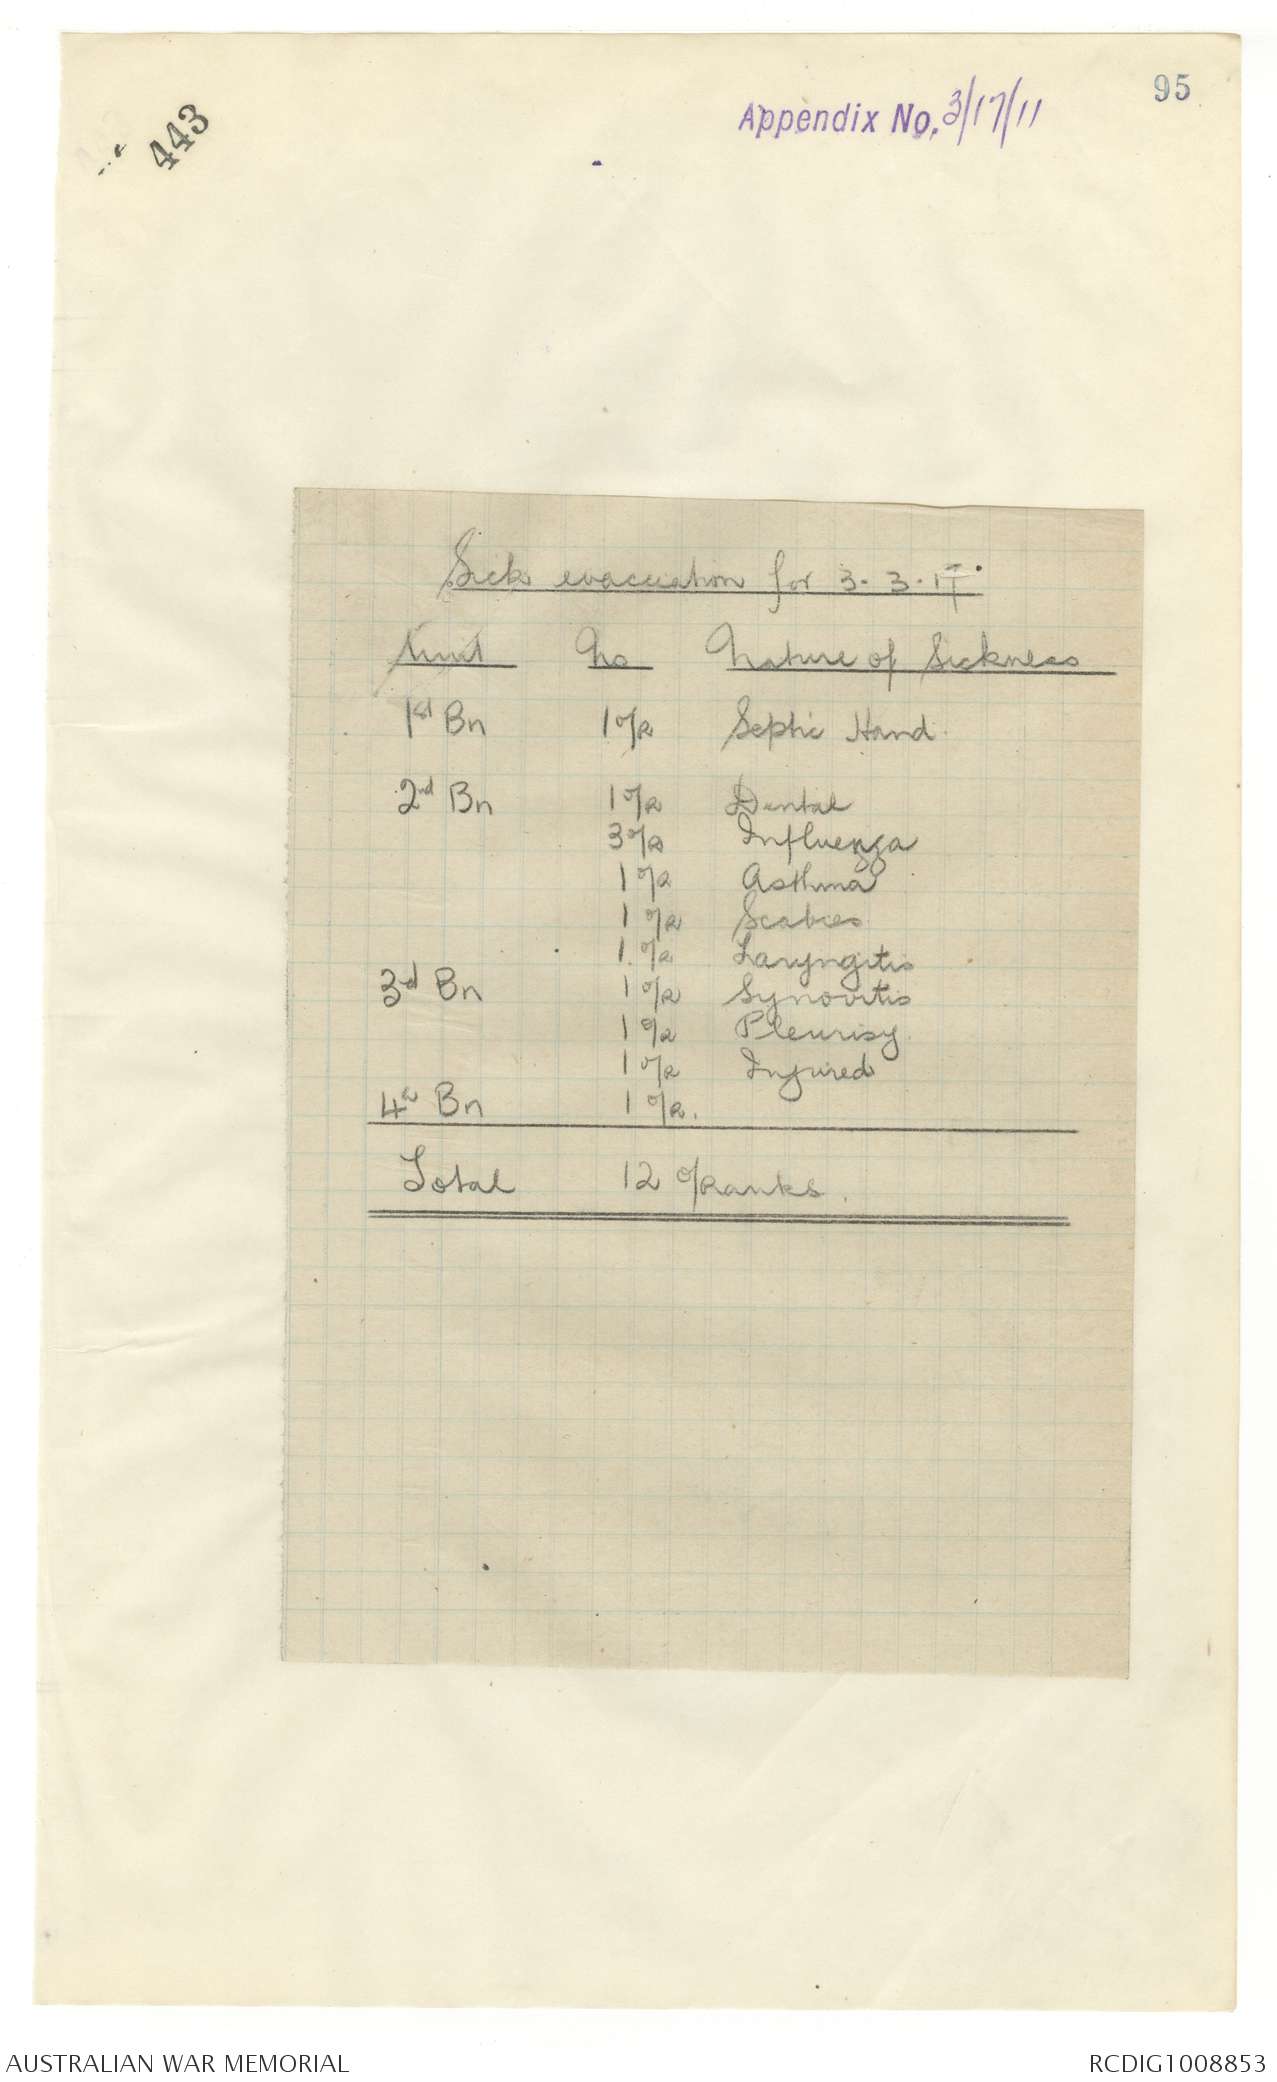 95
Appendix No. 3/17/11
443
Sick evacuation for 3.3.17.
Unit No Nature of Sickness
1st Bn 1 o/R Septic Hand
2nd Bn 1 o/R Dental
3 o/R Influenza
1 o/R Asthma
1 o/R Scabies
1 o/R Laryngitis
3rd Bn 1 o/R Synovitis
1 o/R Pleurisy
1 o/R Injured
4th Bn 1 o/R.
Total 12 o/Ranks.
AUSTRALIAN WAR MEMORIAL
RCDIG1008853